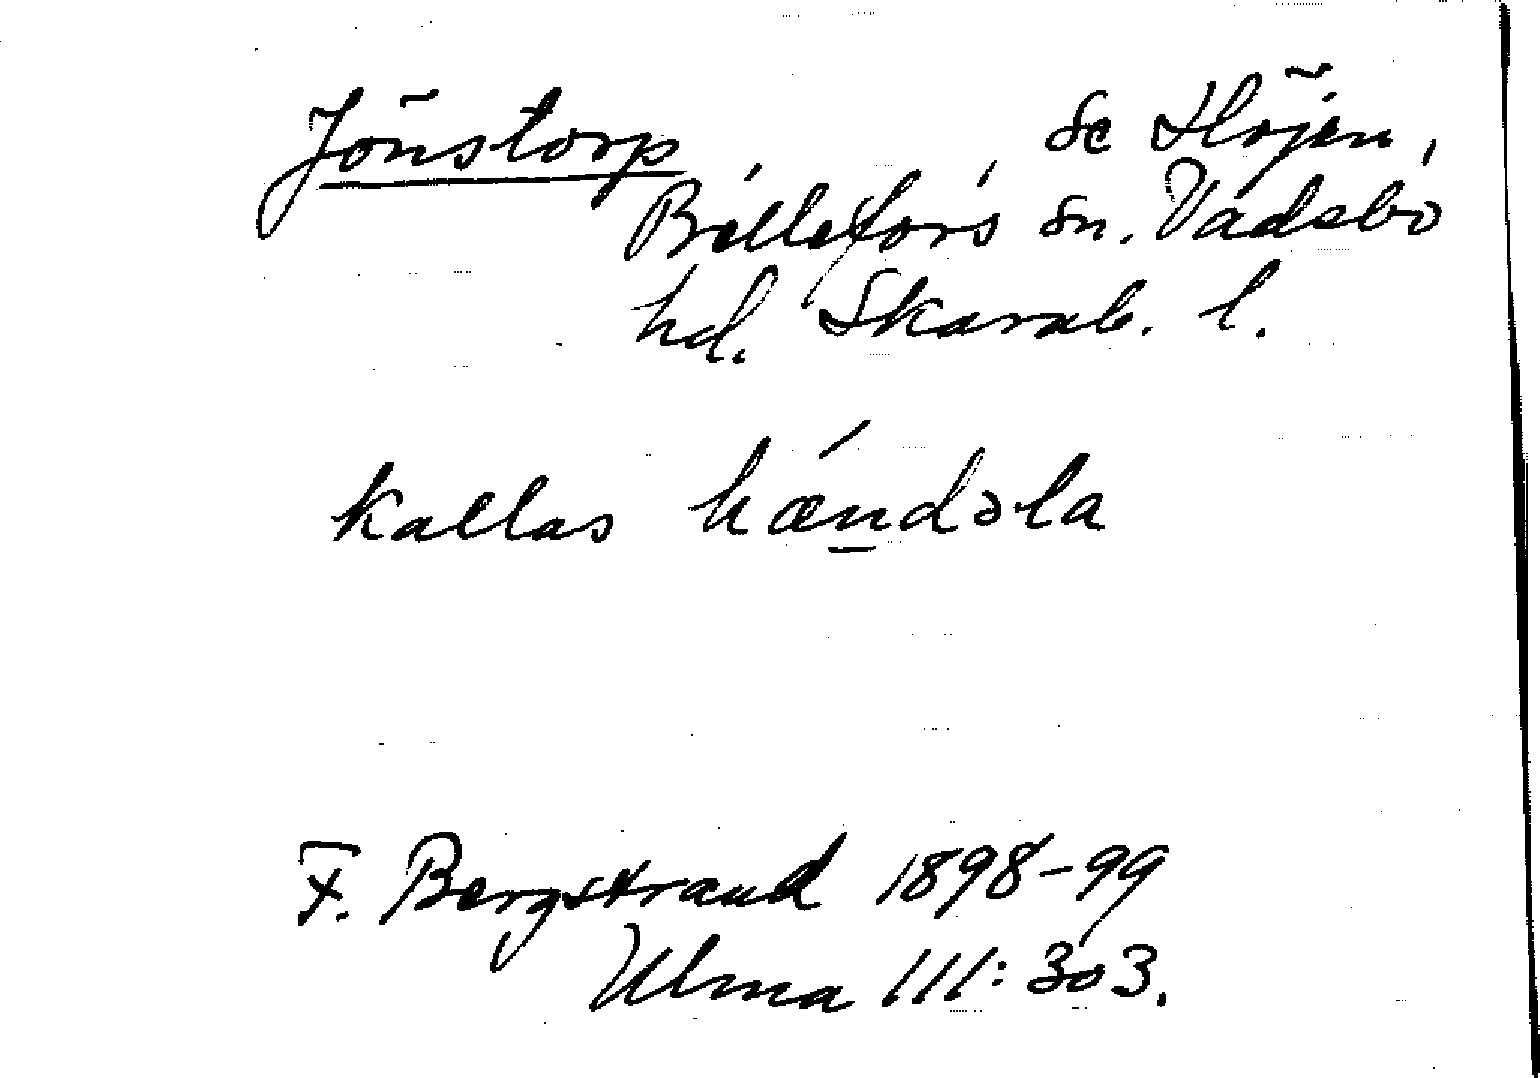 Jönstorp se Höjen,
Bällefors sn. Vadsbo
hd. Skarab. l.
kallas hǽn̲dəla
F. Bergstrand 1898-99
Ulma 111:303.